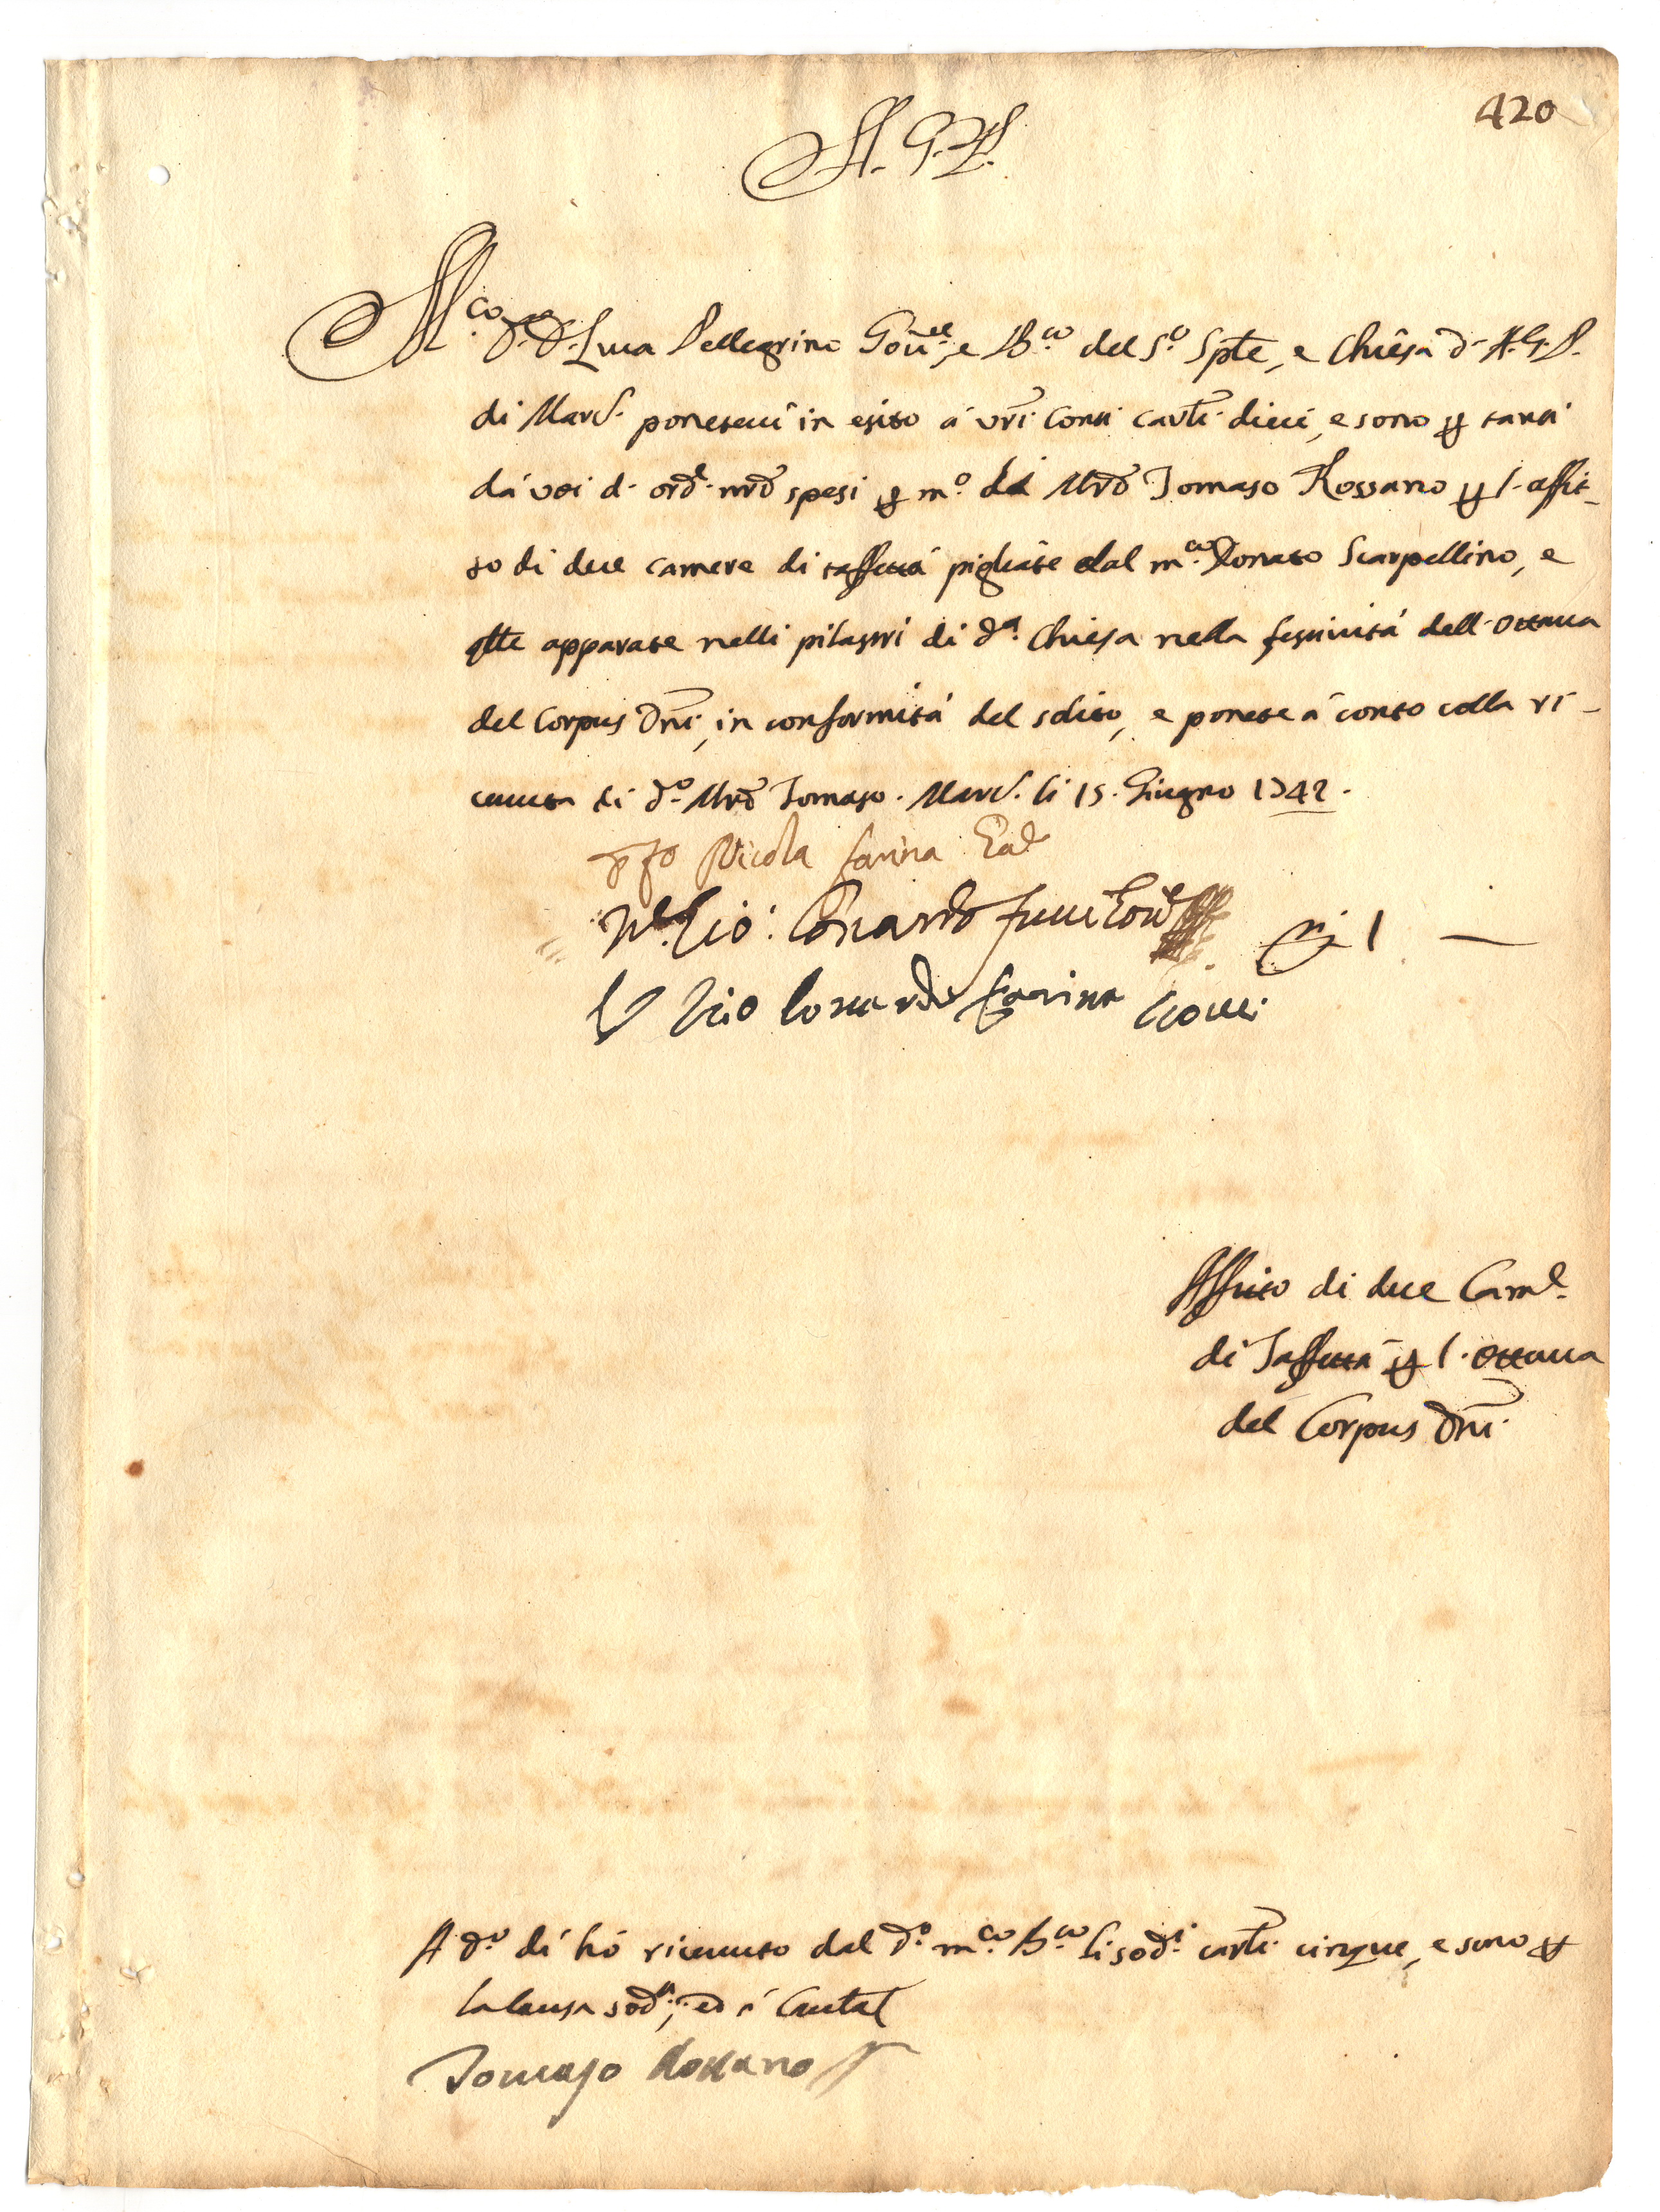 420
A. G. P.
M.co D.r D. Luca Pellegrino Gou.re, e B.co del S.o Spte, e Chiesa d. A. G. P.
di Marc. poneteui in esito á vrí Conti carti dieci, e sono p tanti
dá voi d. ord. nrõ spesi p m.o di Mrõ Tomaso Rossano p l'affit-
to di due camere di taffettá pigliate dal m.co Donato Scarpellino, e
qlle apparate nelli pilastri di d.a Chiesa nella festiuitá dell'ottaua
del Corpus Dñi, in conformitá del solito, e ponete á conto colla ri-
ceuuta di d.o Mrõ Tomaso. Marc. li 15. Giugno 1742.
Nicola farina
Gio: Lonardo
Gio Lonardo farina Gouer
1 —
Affitto di due Cam.e
di Taffettá p l'ottaua
del Corpus Dñi
A d.o dí hó riceuuto dal d.o m.co B.co li sod.i carti cinque, e sono p
la causa sod.a, ed é Cautal
Tomaso Rossano